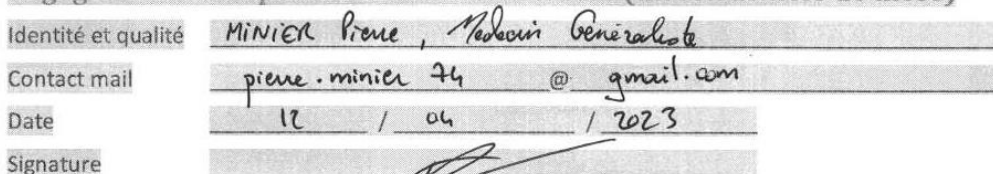 Identité et qualité MINIER Pierre, Médecin Généraliste
Contact mail pierre.minier 74 @ gmail.com
Date 12 / 04 / 2023
Signature